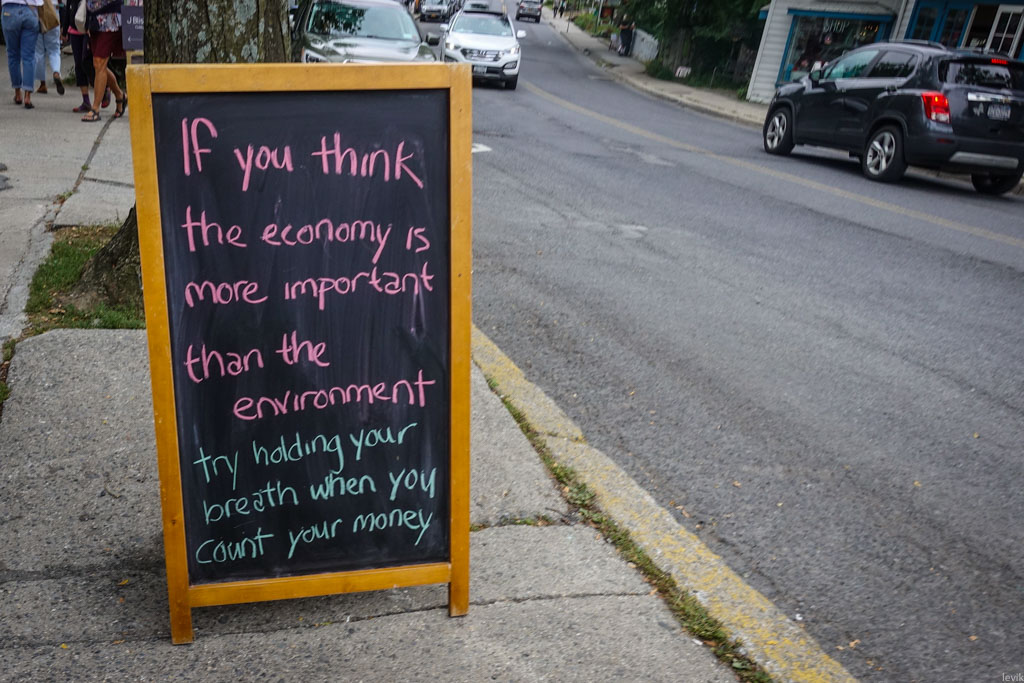 J Blis
If you think
the economy is
more important
than the
environment
try holding your
breath when you
count your money
levik